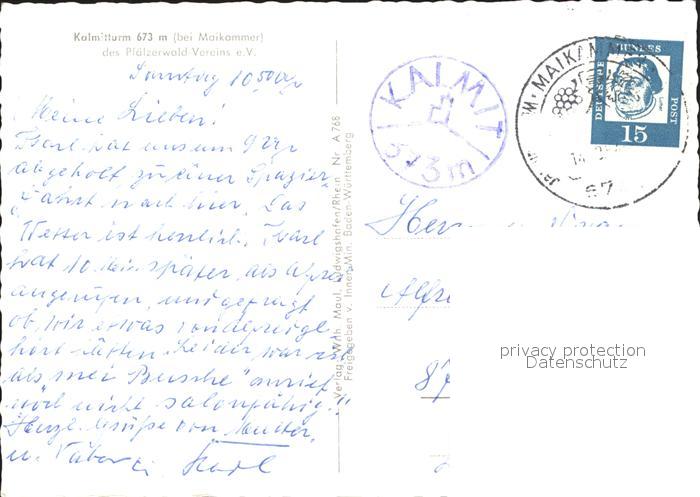 Kalmitturm 673 m (bei Maikammer)
des Pfälzerwald-Vereins e.V.
Sonntag 10.50 Uhr
Meine Lieben.
Karl hat uns um 9 Uhr
abgeholt, zu einer Spazier
fahrt nach hier. Das
Wetter ist herrlich. Karl
hat 10 Min. später, als
angerufen, und gefragt
ob wir etwas von
hört hätten. Leider war
als mei Bursche" anrief
noch nicht salonfähig!!
Herzl. Grüße von Mutter,
u. Vater Karl
Verlag: Wilh. Maul, Ludwigshafen/Rhein Nr. A 768
Freigegeben v. Innen-Min. Baden-Württemberg
KALMIT
673 m
MAIKAMMER
DEUTSCHE BUNDESPOST
15
Herrn
Alfre
87
privacy protection
Datenschutz